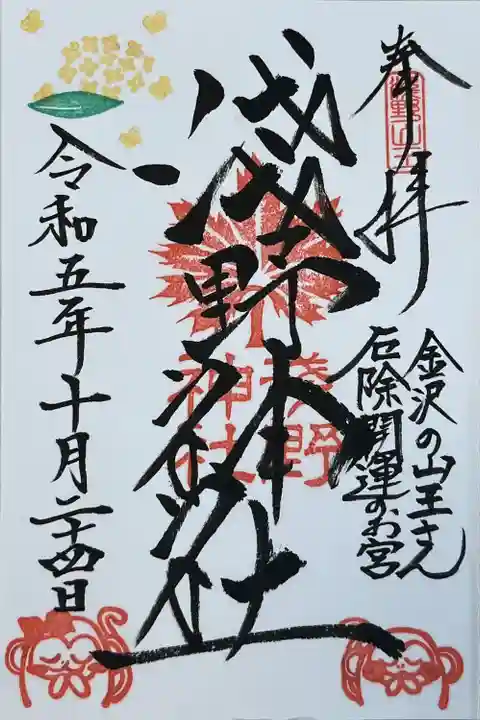 奉拝
浅野山王
金沢の山王さん
厄除開運のお宮
淺野神社
浅野
神社
令和五年十月二十四日